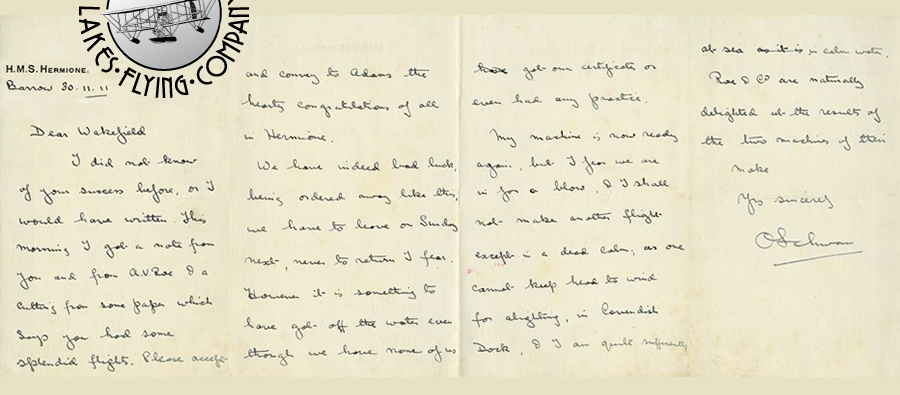 LAKES • FLYING • COMPANY
H.M.S. HERMIONE.
Barrow 30.11.11
Dear Wakefield
I did not know
of your success before, or I
would have written. This
morning I got a note from
you and from A.V. Roe & a
cutting from some paper which
says you had some
splendid flights. Please accept
and convey to Adams the
hearty congratulations of all
in Hermione.
We have indeed bad luck,
being ordered away like this,
we have to leave on Sunday
next, never to return I fear.
However it is something to
have got off the water even
though we have none of us
got our certificate or
even had any practice.
My machine is now ready
again, but I fear we are
in for a blow, & I shall
not make another flight
except in a dead calm, as one
cannot keep head to wind
for alighting, in Cavendish
Dock, & I am quite sufficiently
at sea as it is in calm water.
Roe & Co are naturally
delighted at the results of
the two machines of their
make
Yrs sincerely
O Schwann